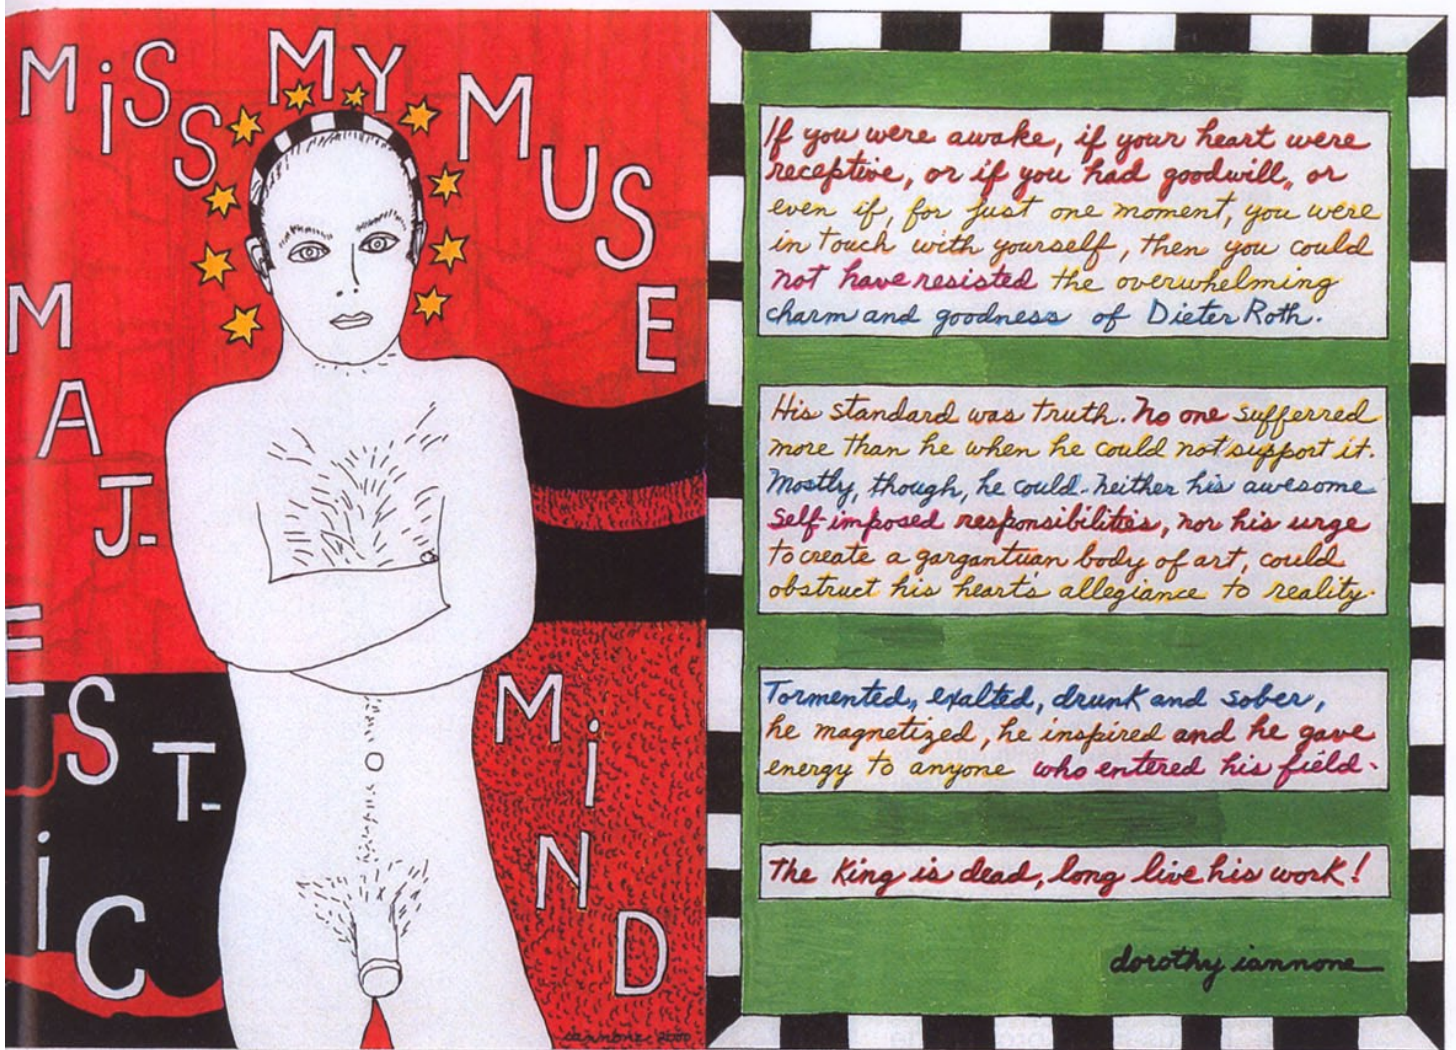 MiSS MY MUSE
MAJ-
EST-
iC
MiND
iannone 2000
If you were awake, if your heart were
receptive, or if you had goodwill, or
even if, for just one moment, you were
in touch with yourself, then you could
not have resisted the overwhelming
charm and goodness of Dieter Roth.
His standard was truth. No one sufferred
more than he when he could not support it.
Mostly, though, he could. Neither his awesome
self-imposed responsibilities, nor his urge
to create a gargantuan body of art, could
obstruct his heart's allegiance to reality.
Tormented, exalted, drunk and sober,
he magnetized, he inspired and he gave
energy to anyone who entered his field.
The King is dead, long live his work!
dorothy iannone